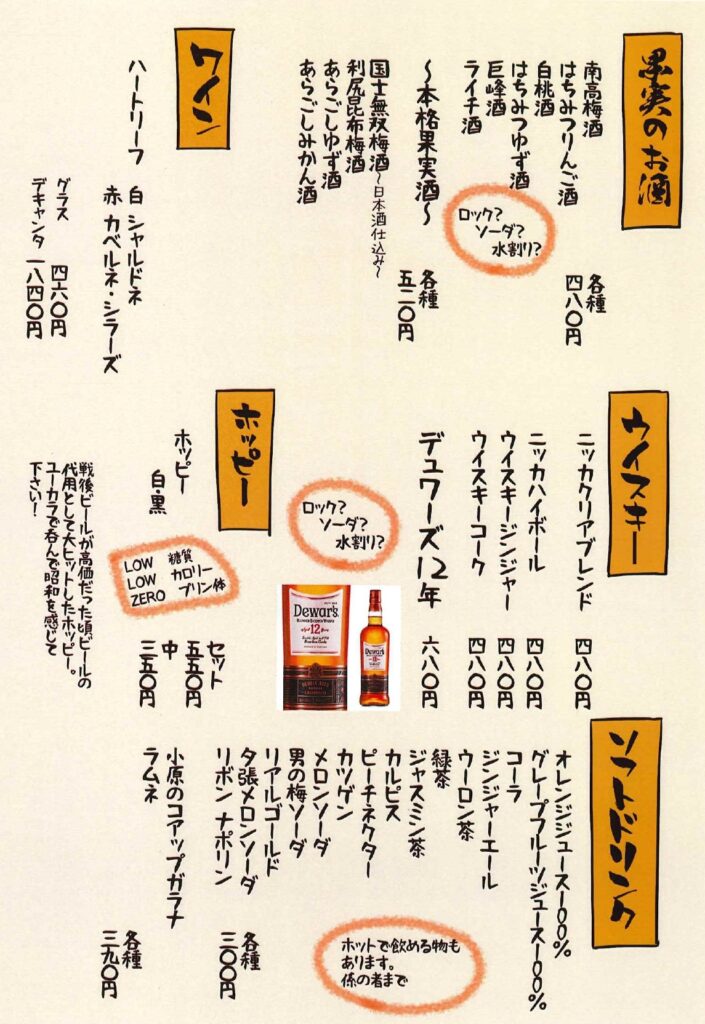 果実のお酒
南高梅酒
はちみつりんご酒
白桃酒
はちみつゆず酒
巨峰酒
ライチ酒
各種
四八〇円
ロック?
ソーダ?
水割り?
〜本格果実酒〜
国士無双梅酒〜日本酒仕込み〜
利尻昆布梅酒
あらごしゆず酒
あらごしみかん酒
各種
五二〇円
ワイン
ハートリーフ 白 シャルドネ
赤 カベルネ・シラーズ
グラス 四六〇円
デキャンタ 一八四〇円
ウイスキー
ニッカクリアブレンド 四八〇円
ニッカハイボール 四八〇円
ウイスキージンジャー 四八〇円
ウイスキーコーク 四八〇円
デュワーズ12年 六八〇円
ロック?
ソーダ?
水割り?
Dewar's
12
Dewar's
12
ホッピー
ホッピー
白・黒
LOW 糖質
LOW カロリー
ZERO プリン体
セット
五五〇円
中
三五〇円
戦後ビールが高価だった頃ビールの
代用として大ヒットしたホッピー。
ユーカラで呑んで昭和を感じて
下さい!
ソフトドリンク
オレンジジュース一〇〇%
グレープフルーツジュース一〇〇%
コーラ
ジンジャーエール
ウーロン茶
緑茶
ジャスミン茶
カルピス
ピーチネクター
カツゲン
メロンソーダ
男の梅ソーダ
リアルゴールド
夕張メロンソーダ
リボン ナポリン
各種
三〇〇円
小原のコアップガラナ
ラムネ
各種
三九〇円
ホットで飲める物も
あります。
係の者まで